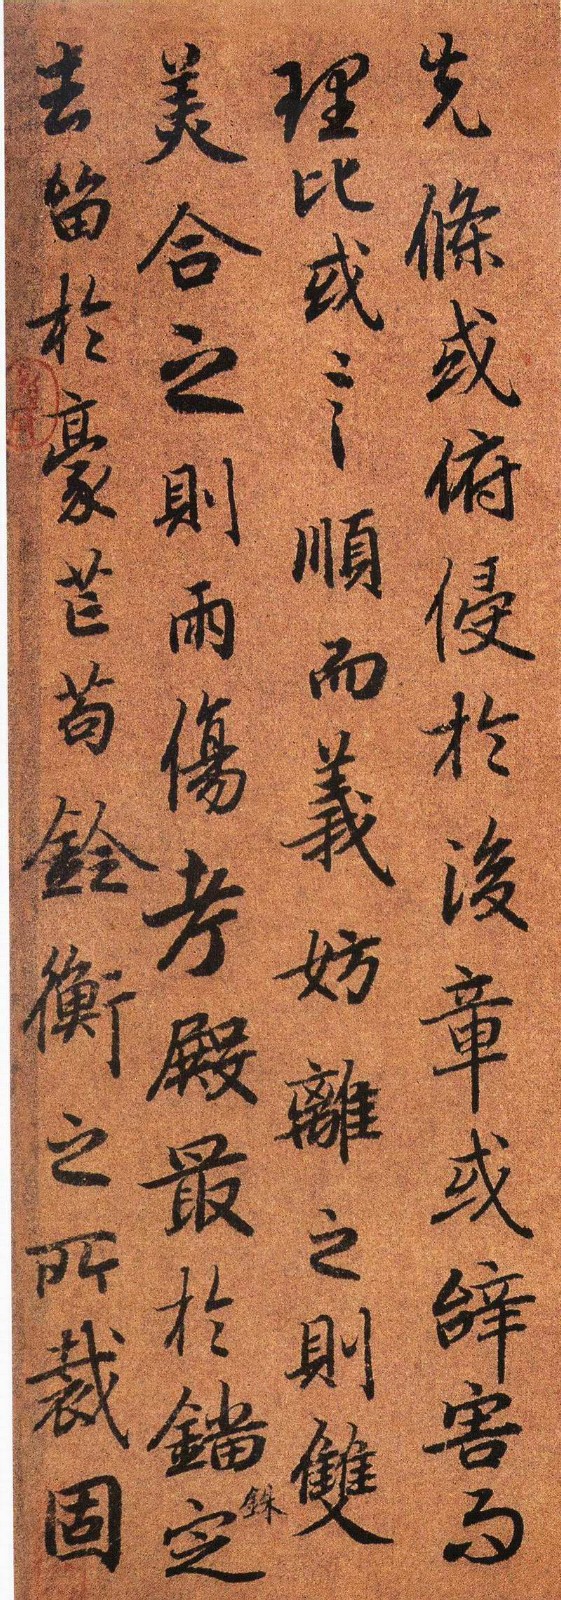 先條或俯侵於後章或辞害而
理比或言順而義妨離之則雙
美合之則兩傷考殿最於錙定
銖
去留於豪芒苟銓衡之所裁固